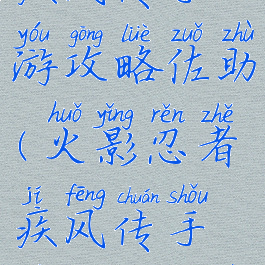 yóu gōng lüè zuǒ zhù
游攻略佐助
huǒ yǐng rěn zhě
(火影忍者
jí fēng chuán shǒu
疾风传手